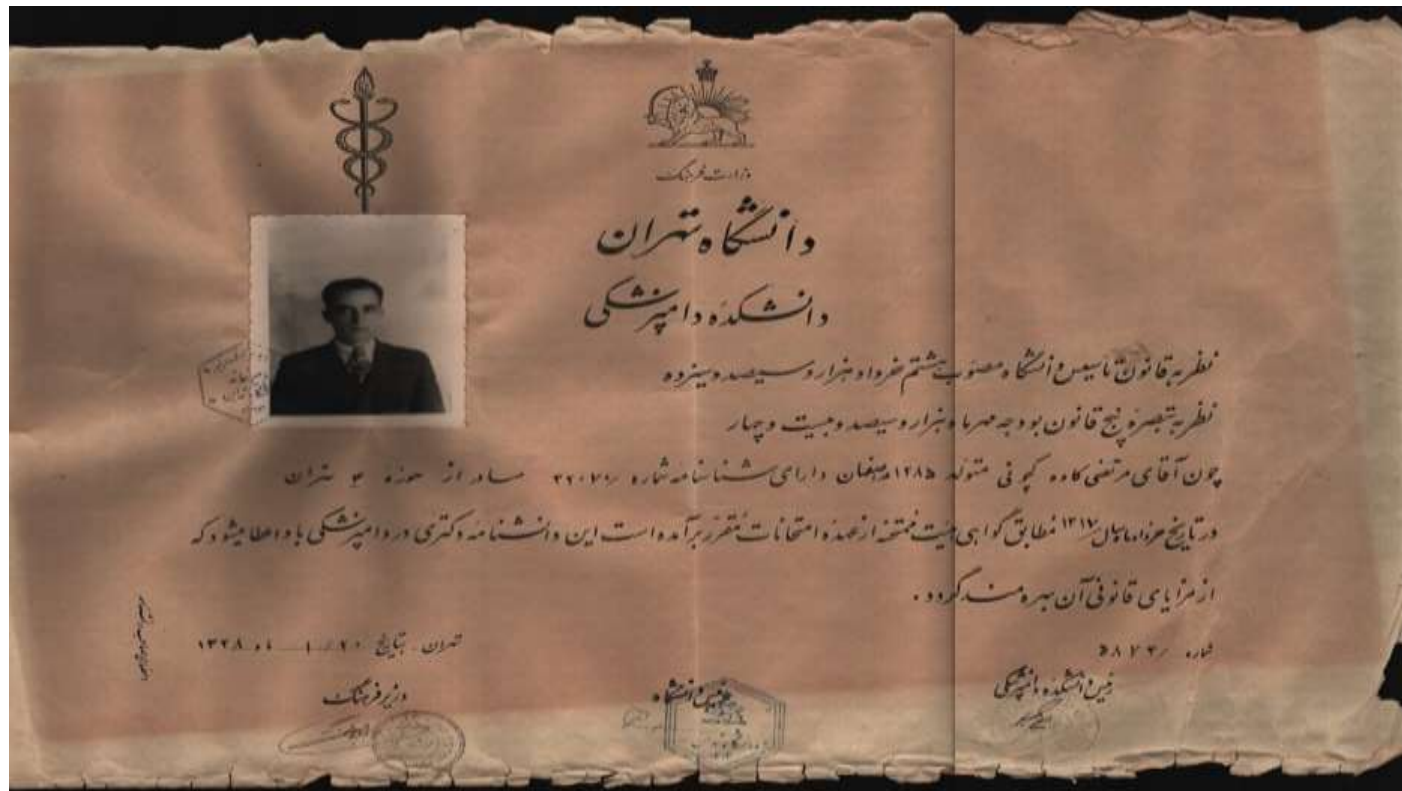 وزارت فرهنگ
دانشگاه تهران
دانشکده دامپزشکی
نظر به قانون تأسیس دانشگاه مصوب هشتم خرداد هزار و سیصد و سیزده
نظر به تبصره پنج قانون بودجه مهرماه هزار و سیصد و بیست و چهار
چون آقای مرتضی کاوه متولد ۱۲۸۵ دارای شناسنامه شماره ۲۲۰۷۰ صادر از حوزه ۴ تهران
در تاریخ خرداد ماه سال ۱۳۱۷ مطابق گواهی هیئت ممتحنه از عهده امتحانات مقرر برآمده است این دانشنامه دکتری در دامپزشکی باو اعطا میشود که
از مزایای قانونی آن بهره‌مند گردد.
شماره ۵۸۷۴
تهران بتاریخ ۲۰ / ۱ ماه ۱۳۲۸
رئیس دانشکده دامپزشکی
رئیس دانشگاه
وزیر فرهنگ